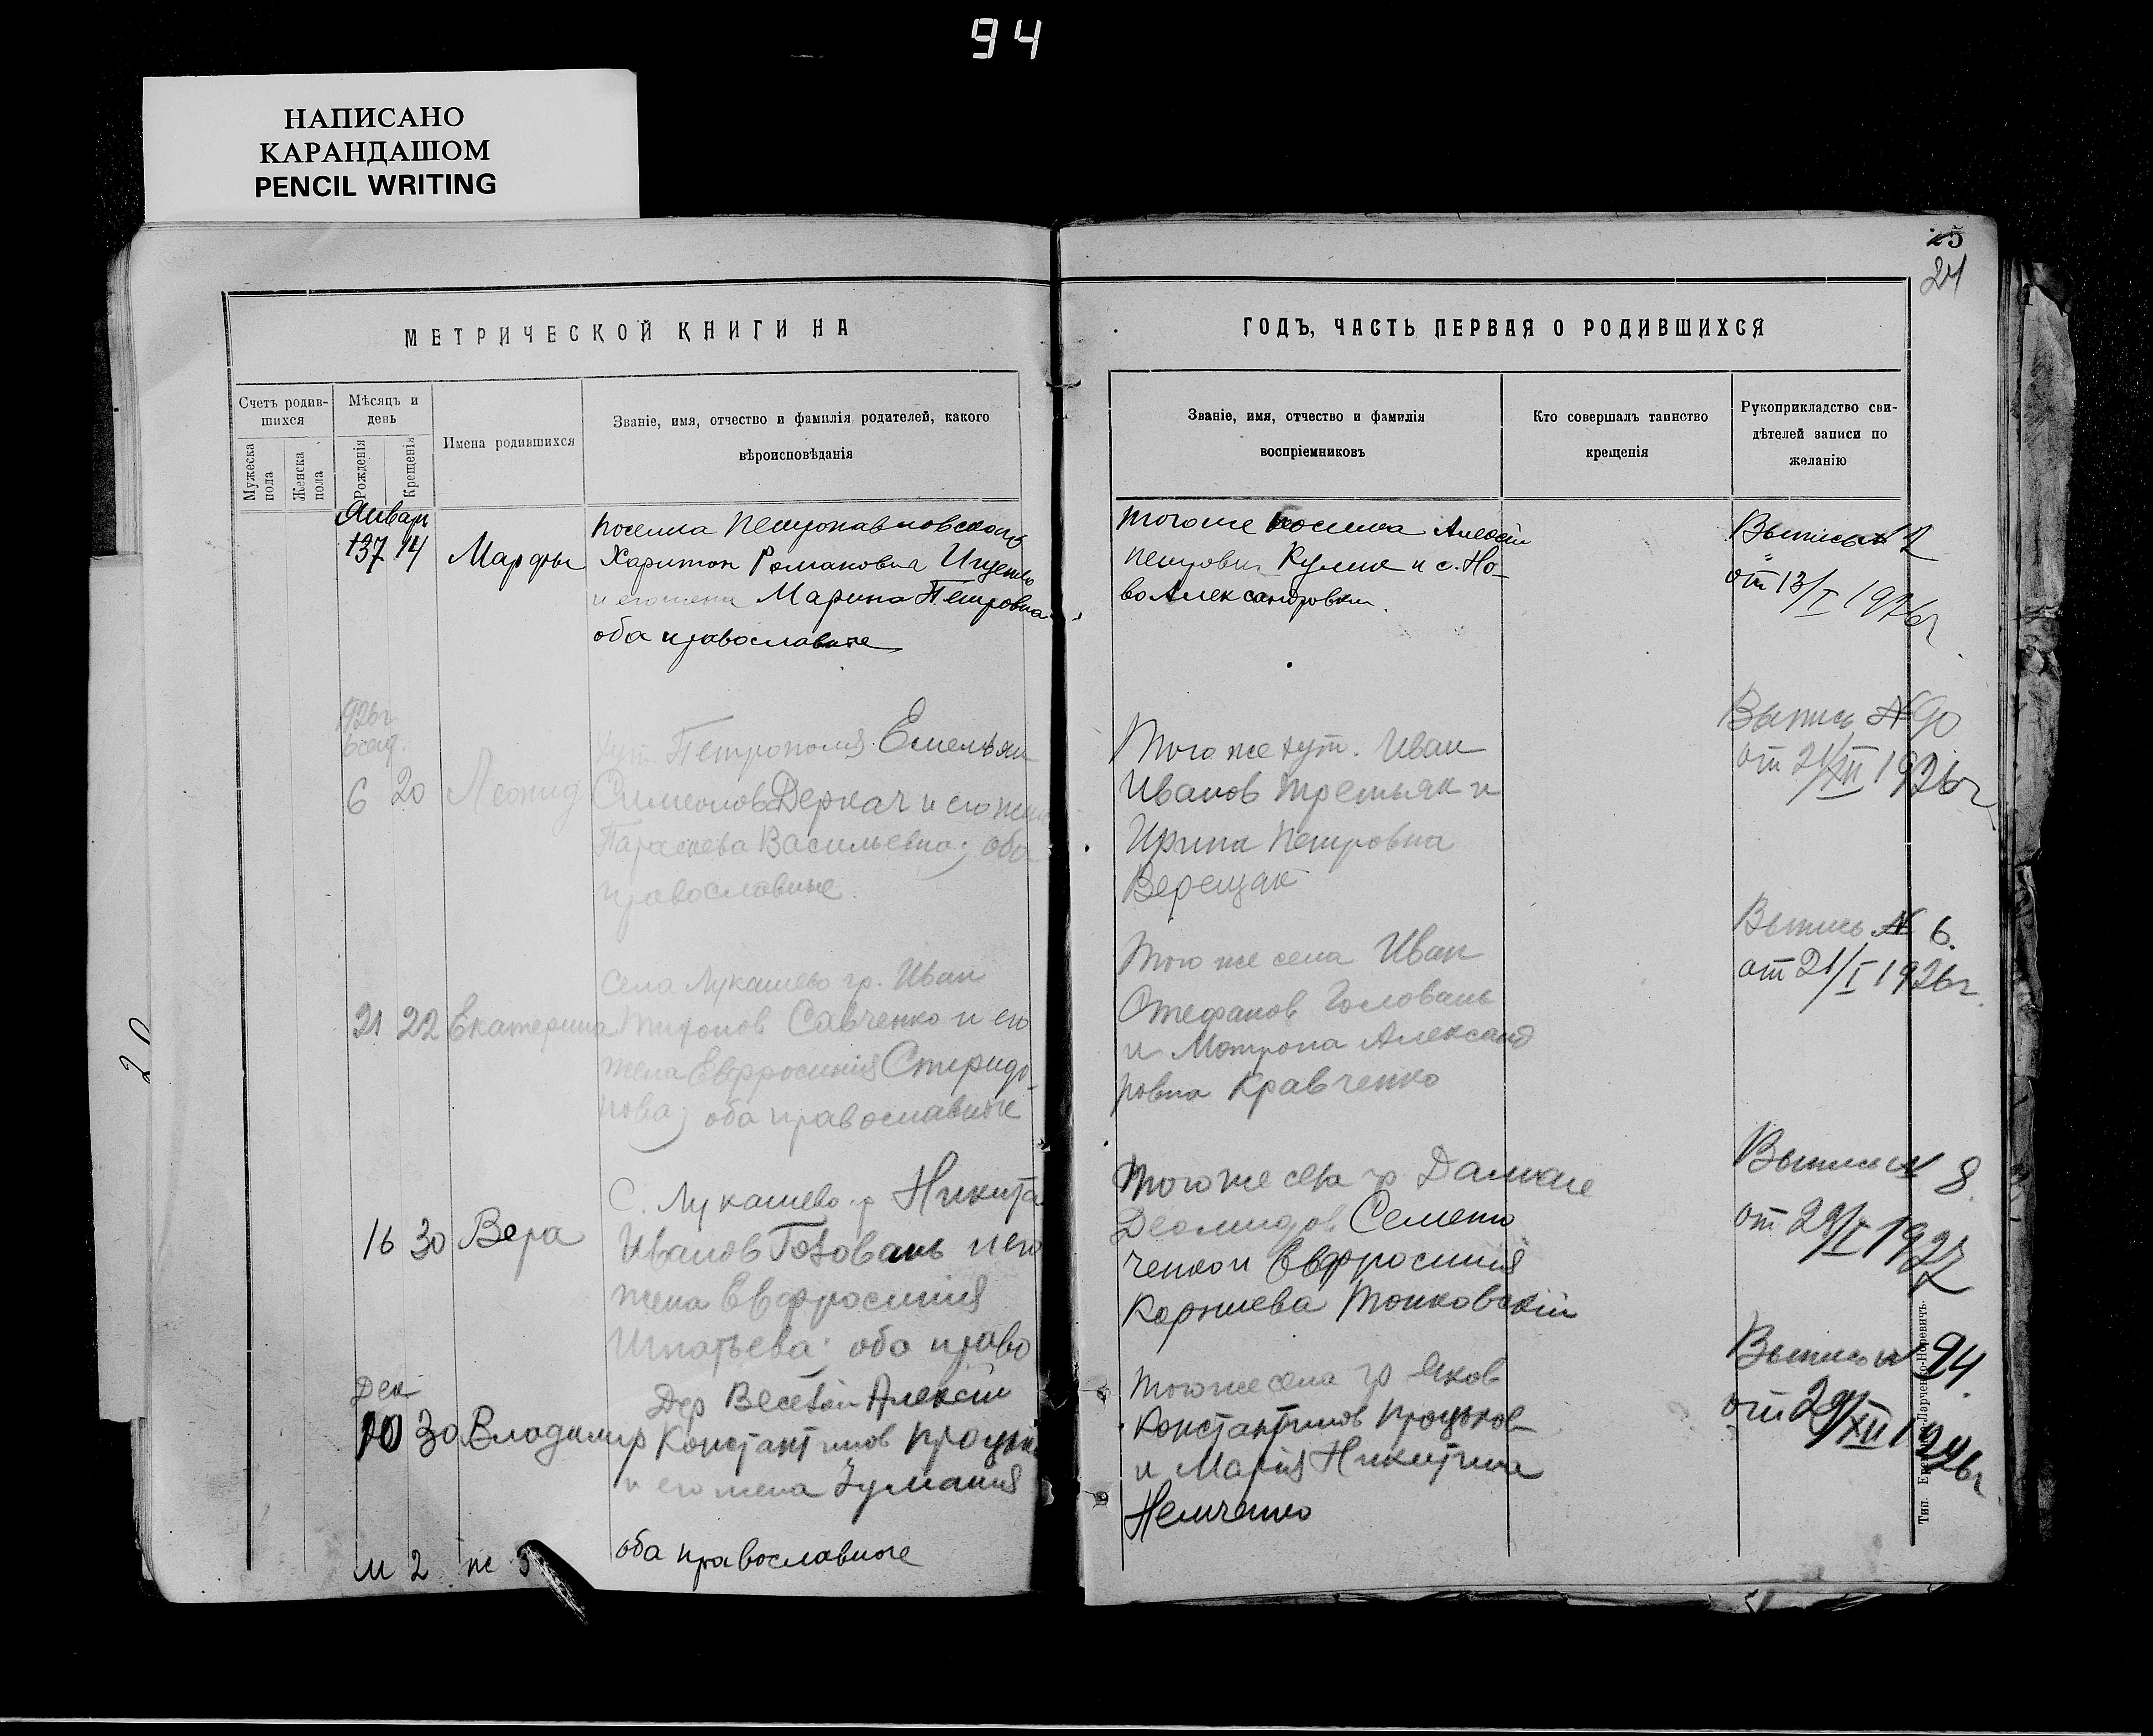 94
НАПИСАНО
КАРАНДАШОМ
PENCIL WRITING
25
24
МЕТРИЧЕСКОЙ КНИГИ НА
ГОДЪ, ЧАСТЬ ПЕРВАЯ О РОДИВШИХСЯ
Счетъ родив-
шихся
Мужеска
пола
Женска
пола
Мѣсяцъ и
день
Рожденія
Крещенія
Имена родившихся
Званіе, имя, отчество и фамилія родителей, какого
вѣроисповѣданія
Званіе, имя, отчество и фамилія
воспріемниковъ
Кто совершалъ таинство
крещенія
Рукоприкладство сви-
дѣтелей записи по
желанію
Январ
14
Марфы
поселка Петропавловского
Харитон Романович Ищенко
и его жена Марина Петровна
оба православные
того же поселка Алексій
Петрович Кулик и с. Но-
во Александровки.
Выпись № 2
от 13/I 1926 г
1926 г
6 20 Леонид
хут. Петрополя Емельян
Симеонов Деркач и его жена
Параскева Васильевна; оба
православные.
Того же хут. Иван
Иванов Третьяк и
Ирина Петровна
Верещак
Выпись № 90
от 21/XII 1926 г
21 22 Екатерина
Села Лукашево гр. Иван
Тихонов Савченко и его
жена Евфросинія Спиридо-
нова; оба православные
Того же села Иван
Стефанов Головань
и Матрона Александ
ровна Кравченко
Выпись № 6.
от 21/I 1926 г.
16 30 Вера
С. Лукашево гр Никита
Иванов Головань и его
жена Евфросинія
Игнатьева; оба право
Того же села гр
Деомидов Семени
ченко и Евфросинія
Корниева
Выпись № 8.
от 29/I 1927
Дек
10 30 Владимир
Дер Весёлой Алексій
Константинов Процько
и его жена
оба православные
Того же села гр Яков
Константинов
и Марія Никитина
Немченко
Выпись № 94.
от 29/XII 1926 г
м 2 ж 3
20
Тип. Ларченко-Норевичъ.